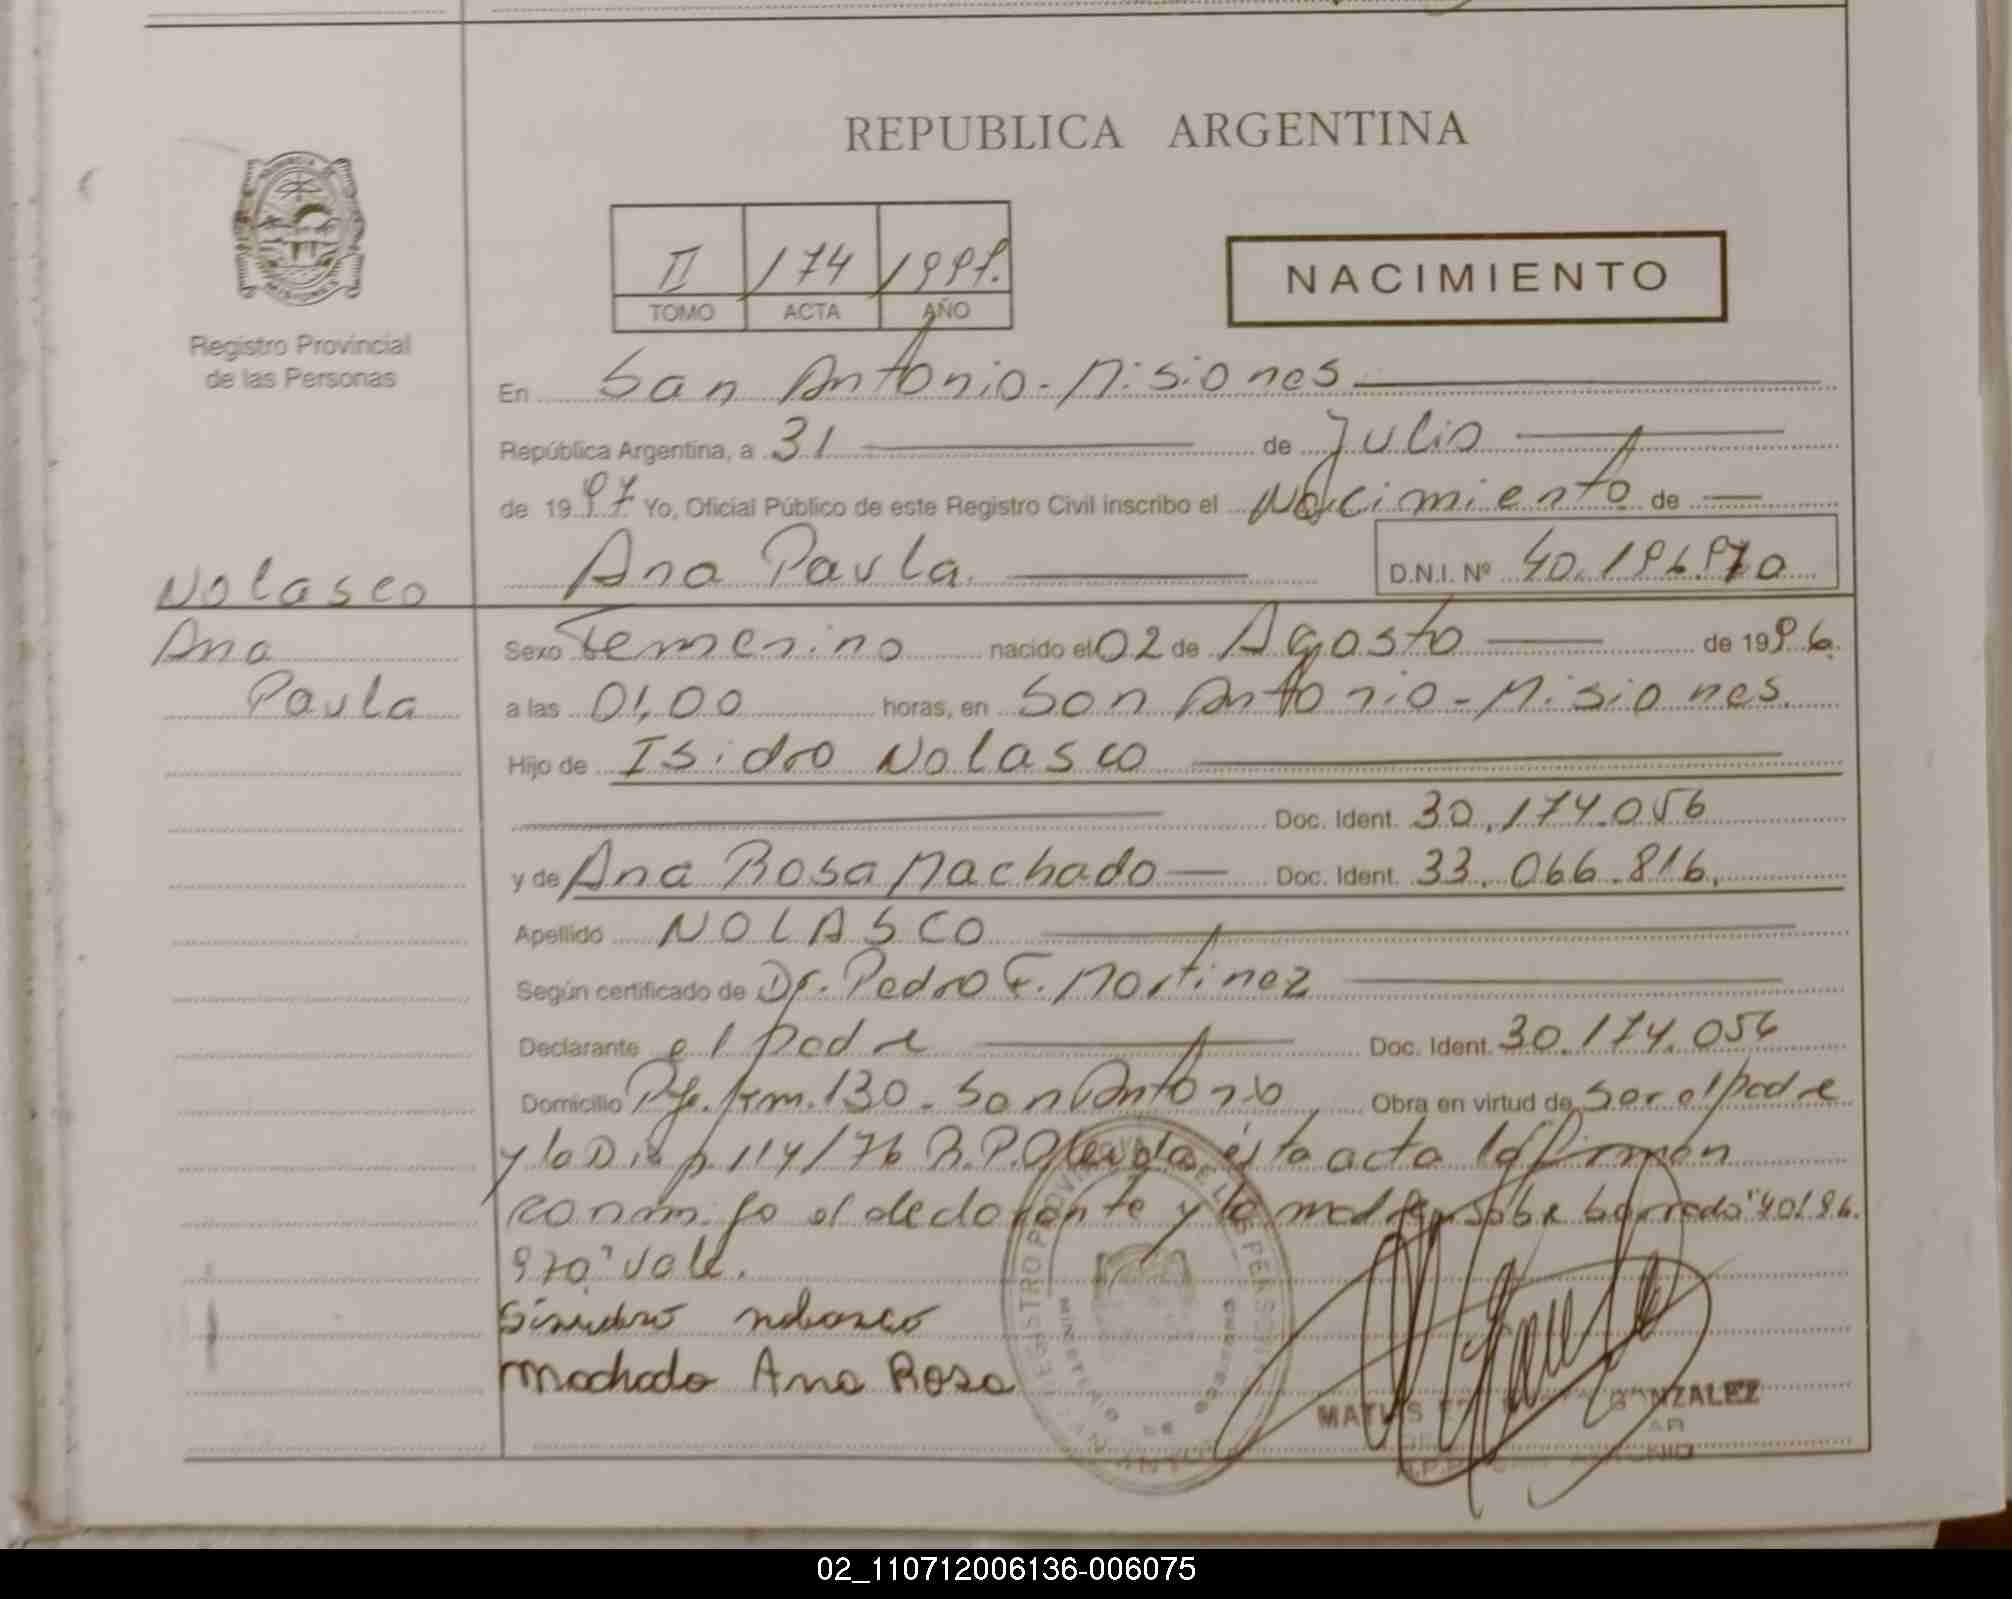 REPUBLICA ARGENTINA
II 174 1997.
TOMO ACTA AÑO
NACIMIENTO
Registro Provincial
de las Personas
En San Antonio - Misiones
República Argentina, a 31 de Julio
de 1997 Yo, Oficial Público de este Registro Civil inscribo el Nacimiento de
Nolasco Ana Paula D.N.I. Nº 40.196.970
Ana Sexo Femenino nacido el 02 de Agosto de 1996.
Paula a las 01,00 horas, en San Antonio - Misiones.
Hijo de Isidro Nolasco
Doc. Ident. 30.174.056
y de Ana Rosa Machado Doc. Ident. 33.066.816.
Apellido NOLASCO
Según certificado de Dr. Pedro F. Martinez
Declarante el padre Doc. Ident. 30.174.056
Domicilio Pje. km. 130 - San Antonio Obra en virtud de ser el padre
y la Disp. 114/76 R.P. esta acta la firman
conmigo el declarante y la madre sobre borrado "40.196.
970" vale.
Machado Ana Rosa
REGISTRO PROVINCIAL DE LAS PERSONAS
MINISTERIO DE GOBIERNO
SAN ANTONIO
GONZALEZ
02_110712006136-006075